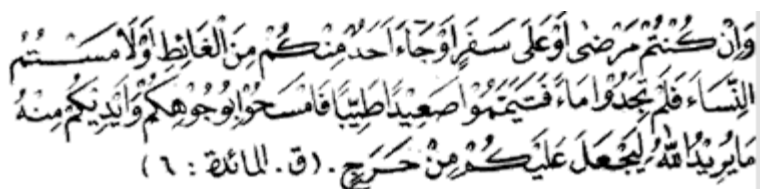 وَاِنْ كُنْتُمْ مَرْضٰى اَوْعَلٰى سَفَرٍ اَوْجَاءَ اَحَدٌ مِنْكُمْ مِنَ الْغَائِطِ اَوْلَامَسْتُمُ
النِّسَاءَ فَلَمْ تَجِدُوْا مَاءً فَتَيَمَّمُوْا صَعِيْدًا طَيِّبًا فَامْسَحُوْا بِوُجُوْهِكُمْ وَاَيْدِيْكُمْ مِنْهُ
مَايُرِيْدُاللّٰهُ لِيَجْعَلَ عَلَيْكُمْ مِنْ حَرَجٍ . (ق . المائدة : ٦ )